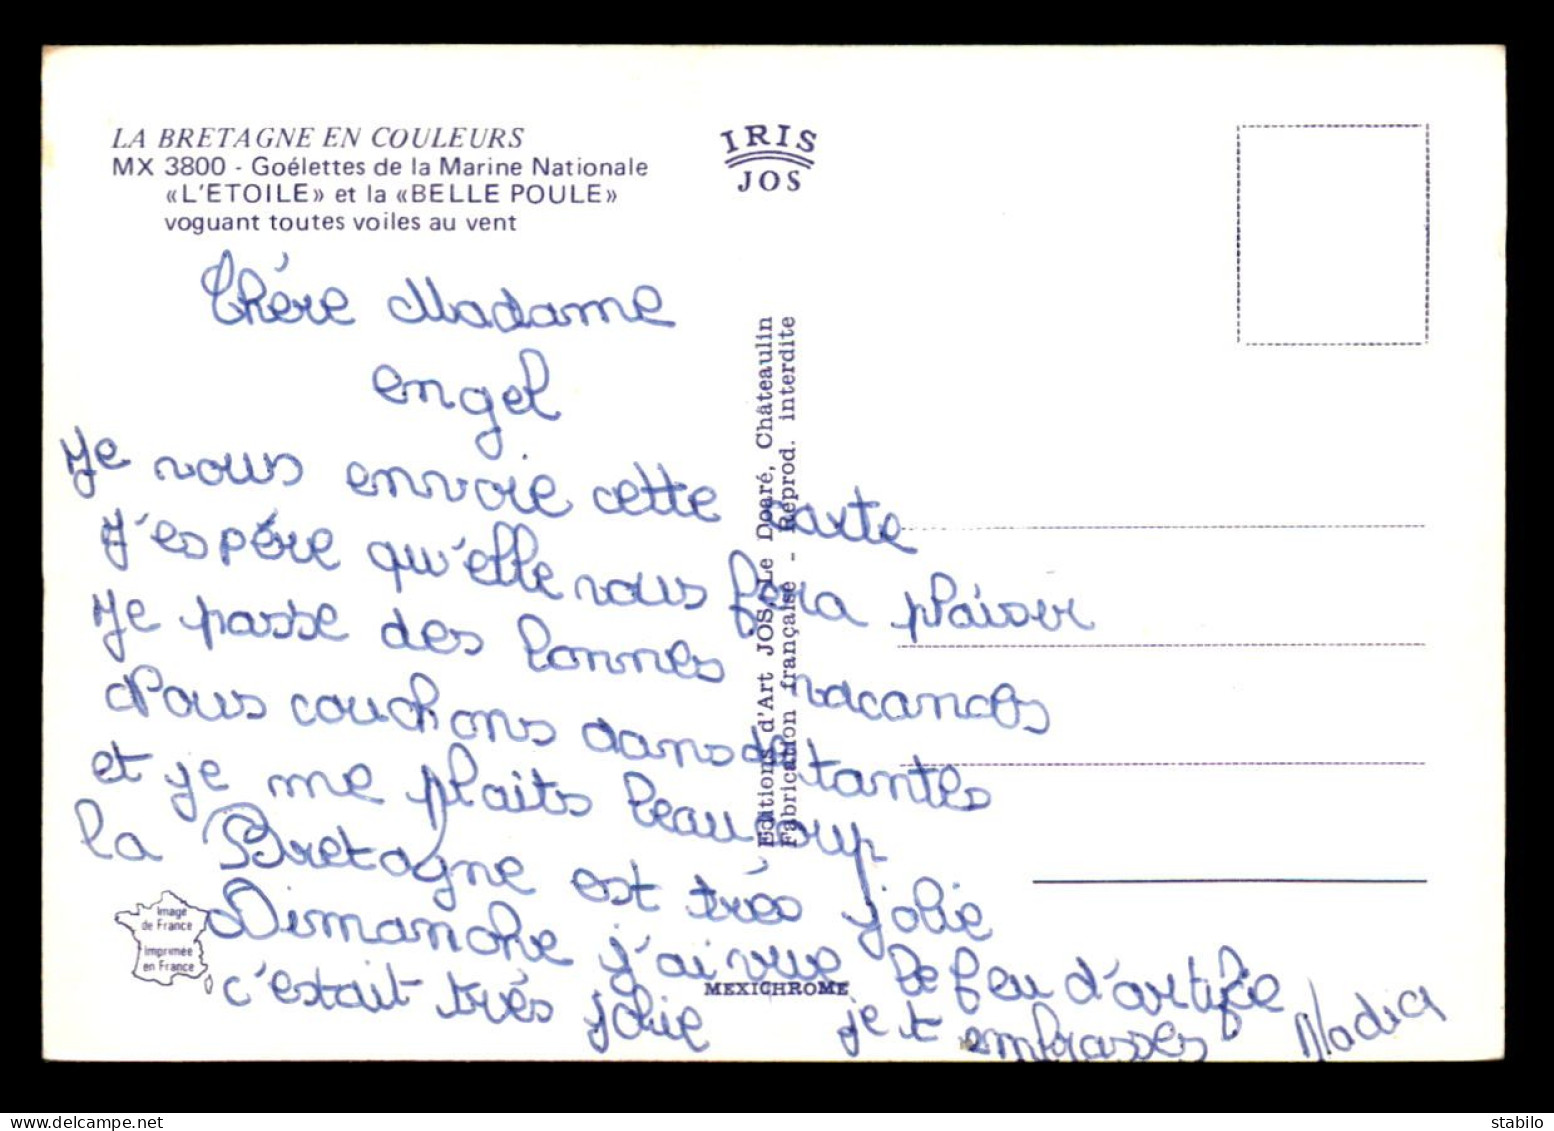 LA BRETAGNE EN COULEURS
MX 3800 - Goélettes de la Marine Nationale
«L'ETOILE» et la «BELLE POULE»
voguant toutes voiles au vent
IRIS
JOS
Chére Madame
engel
Je vous envoie cette carte
J'espére qu'elle vous fera plaisir
Je passe des bonnes vacances
Nous couchons dans de tantes
et je me plaits beaucoup
la Bretagne est trés jolie
Dimanche j'ai vue le feu d'artifie
c'estait trés jolie je t embrasses Nadia
Editions d'Art JOS, Le Doaré, Châteaulin
Fabrication française - Reprod. interdite
Image
de France
Imprimée
en France
MEXICHROME
delcampe.net
stabilo